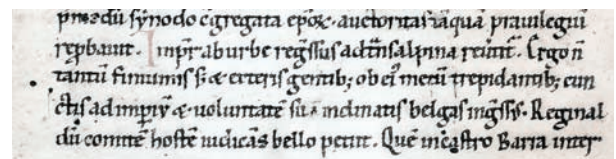 pmædiu synodo cgregata epoꝝ. auctoritas iaqua prauilegiu
repbauit. Impr ab urbe regssus ad tnsalpina reuiit. Ergo n
tantu finumis s; & exteris gentib; ob ei metu trepidantib; cun
ctis ad imperiu & uoluntate sua inclinatis belgas ingssus. Reginal
du comite hoste iudicas bello petiit. Que in castro Barra inter